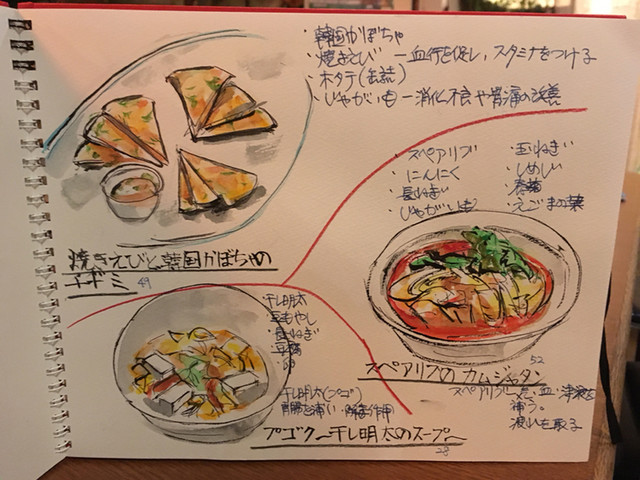 ・韓国かぼちゃ
・焼きえび ー血行を促し、スタミナをつける
・ホタテ(缶詰)
・じゃがいもー消化不良や胃痛の改善
焼きえびと韓国かぼちゃの
チヂミ
49
・スペアリブ
・にんにく
・長ねぎ
・じゃがいも
・玉ねぎ
・しめじ
・春菊
・えごまの葉
スペアリブのカムジャタン
52
スペアリブー
血・津液を
補う。
疲れを取る
・干し明太
・豆もやし
・長ねぎ
・豆腐
・卵
干し明太(プゴ)
プゴク〜干し明太のスープ〜
28